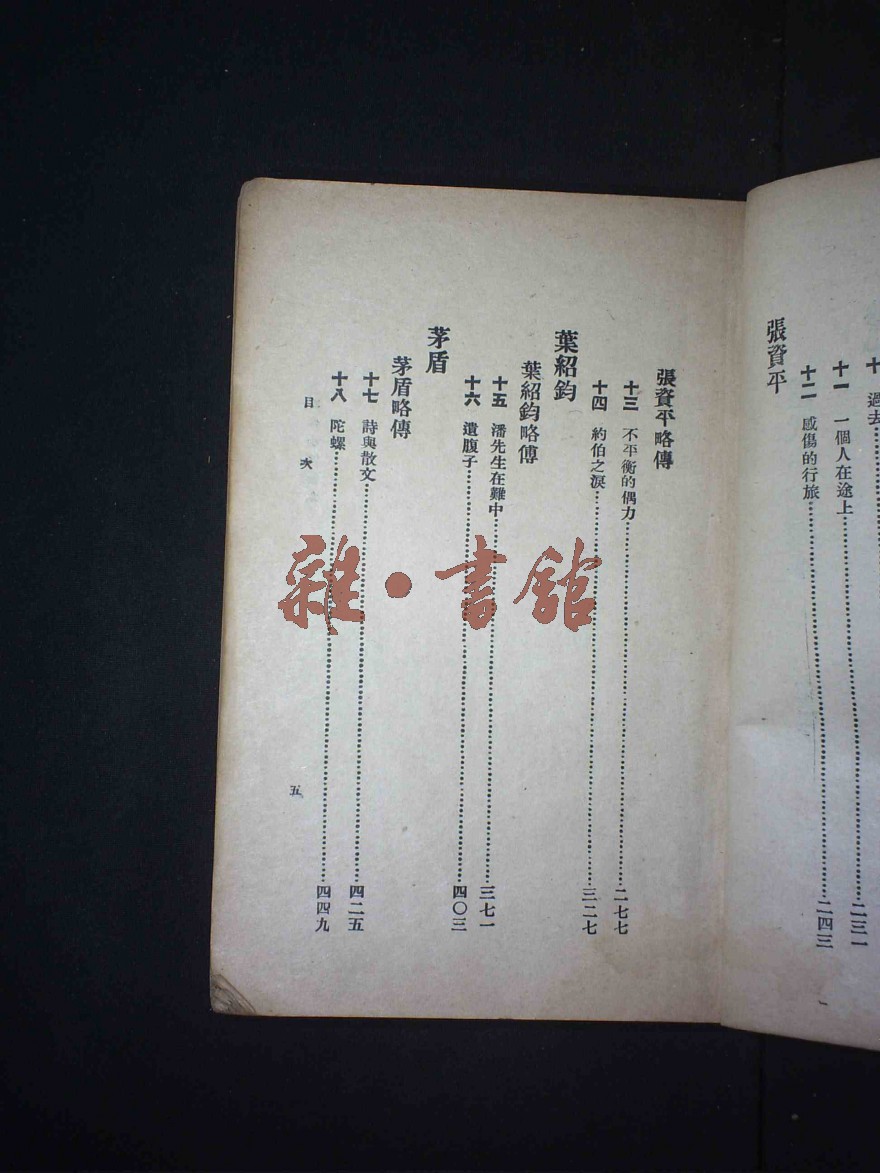 過去
十一 一個人在途上 二三一
十二 感傷的行旅 二四三
張資平
張資平略傳
十三 不平衡的偶力 二七七
十四 約伯之淚 三二七
葉紹鈞
葉紹鈞略傳
十五 潘先生在難中 三七一
十六 遺腹子 四〇三
茅盾
茅盾略傳
十七 詩與散文 四二五
十八 陀螺 四四九
目次
五
雜·書館